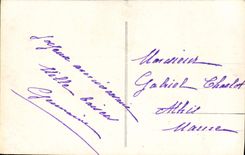 Joyeux anniversaire
Mille baisers
Germaine
Monsieur
Gabriel Charlot
Athis
Marne